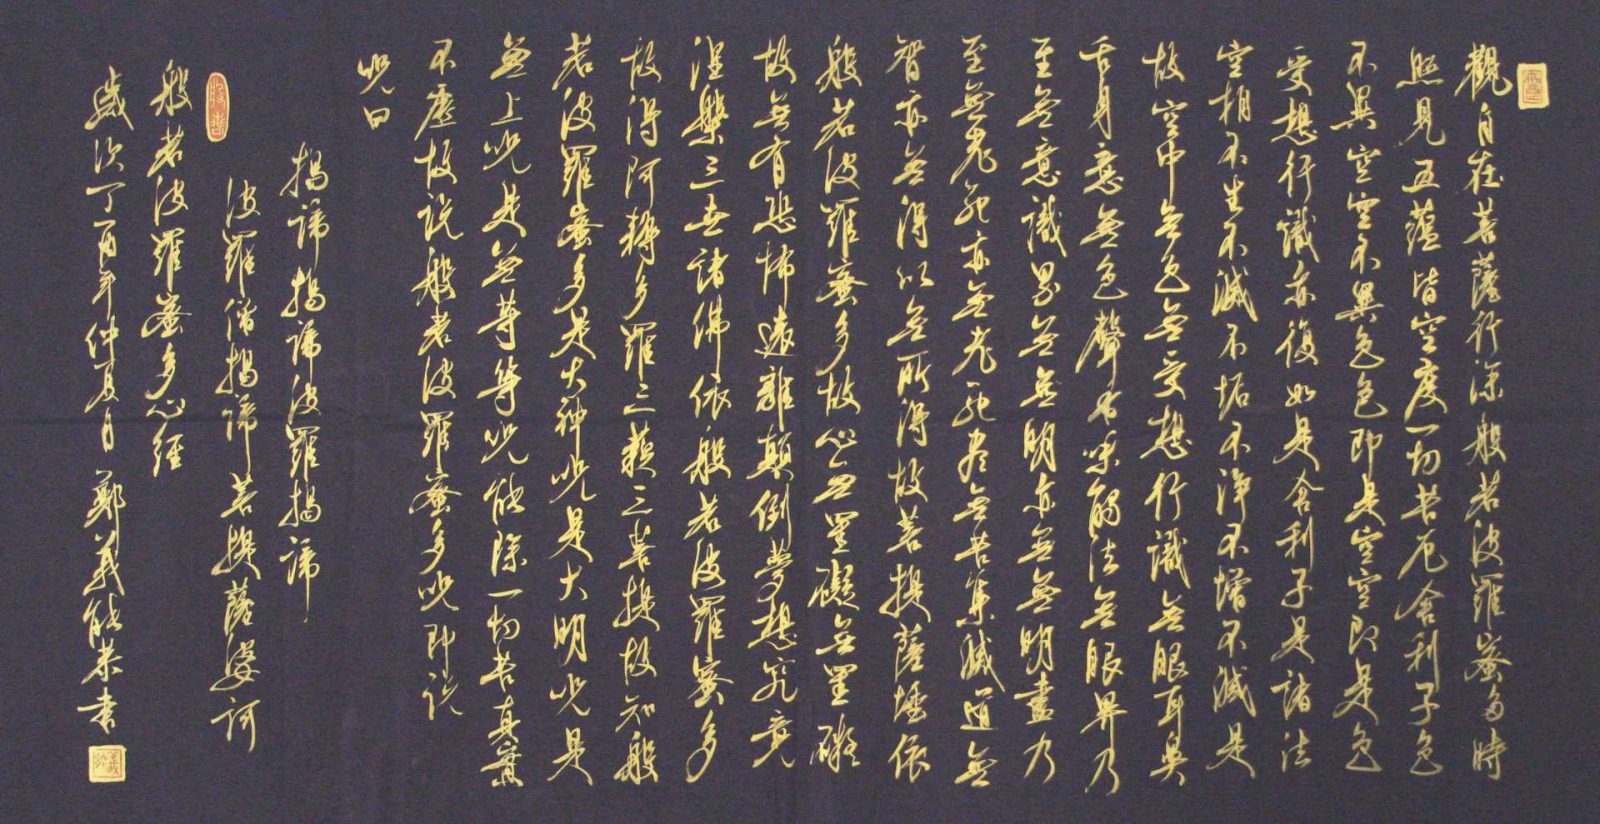 觀自在菩薩行深般若波羅蜜多時
照見五蘊皆空度一切苦厄舍利子色
不異空空不異色色即是空空即是色
受想行識亦復如是舍利子是諸法
空相不生不滅不垢不淨不增不減是
故空中無色無受想行識無眼耳鼻
舌身意無色聲香味觸法無眼界乃
至無意識界無無明亦無無明盡乃
至無老死亦無老死盡無苦集滅道無
智亦無得以無所得故菩提薩埵依
般若波羅蜜多故心無罣礙無罣礙
故無有恐怖遠離顛倒夢想究竟
涅槃三世諸佛依般若波羅蜜多
故得阿耨多羅三藐三菩提故知般
若波羅蜜多是大神咒是大明咒是
無上咒是無等等咒能除一切苦真實
不虛故說般若波羅蜜多咒即說
咒曰
揭諦揭諦波羅揭諦
波羅僧揭諦菩提薩婆訶
般若波羅蜜多心經
歲次丁酉年仲夏月 鄭義能恭書